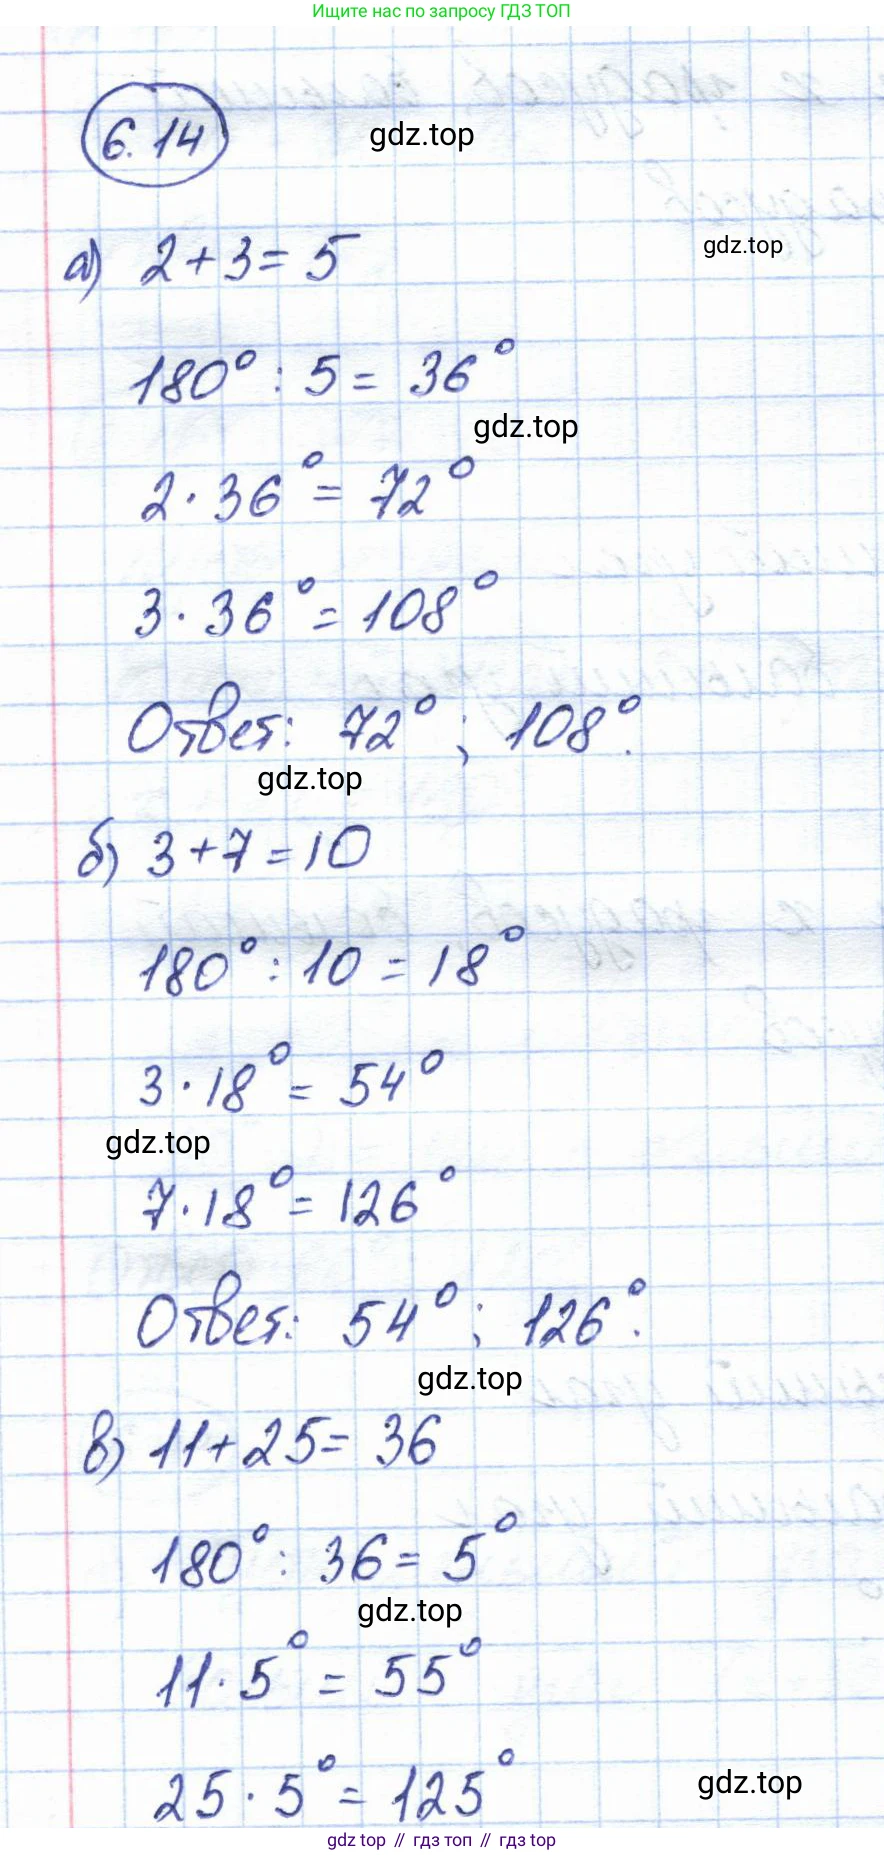 Ищите нас по запросу ГДЗ ТОП
6.14
gdz.top
а) 2 + 3 = 5
gdz.top
180° : 5 = 36°
gdz.top
2 · 36° = 72°
3 · 36° = 108°
Ответ: 72° ; 108°.
gdz.top
б) 3 + 7 = 10
180° : 10 = 18°
3 · 18° = 54°
gdz.top
7 · 18° = 126°
Ответ: 54° ; 126°.
gdz.top
в) 11 + 25 = 36
180° : 36 = 5°
gdz.top
11 · 5° = 55°
25 · 5° = 125°
gdz.top
gdz top // гдз топ // гдз top